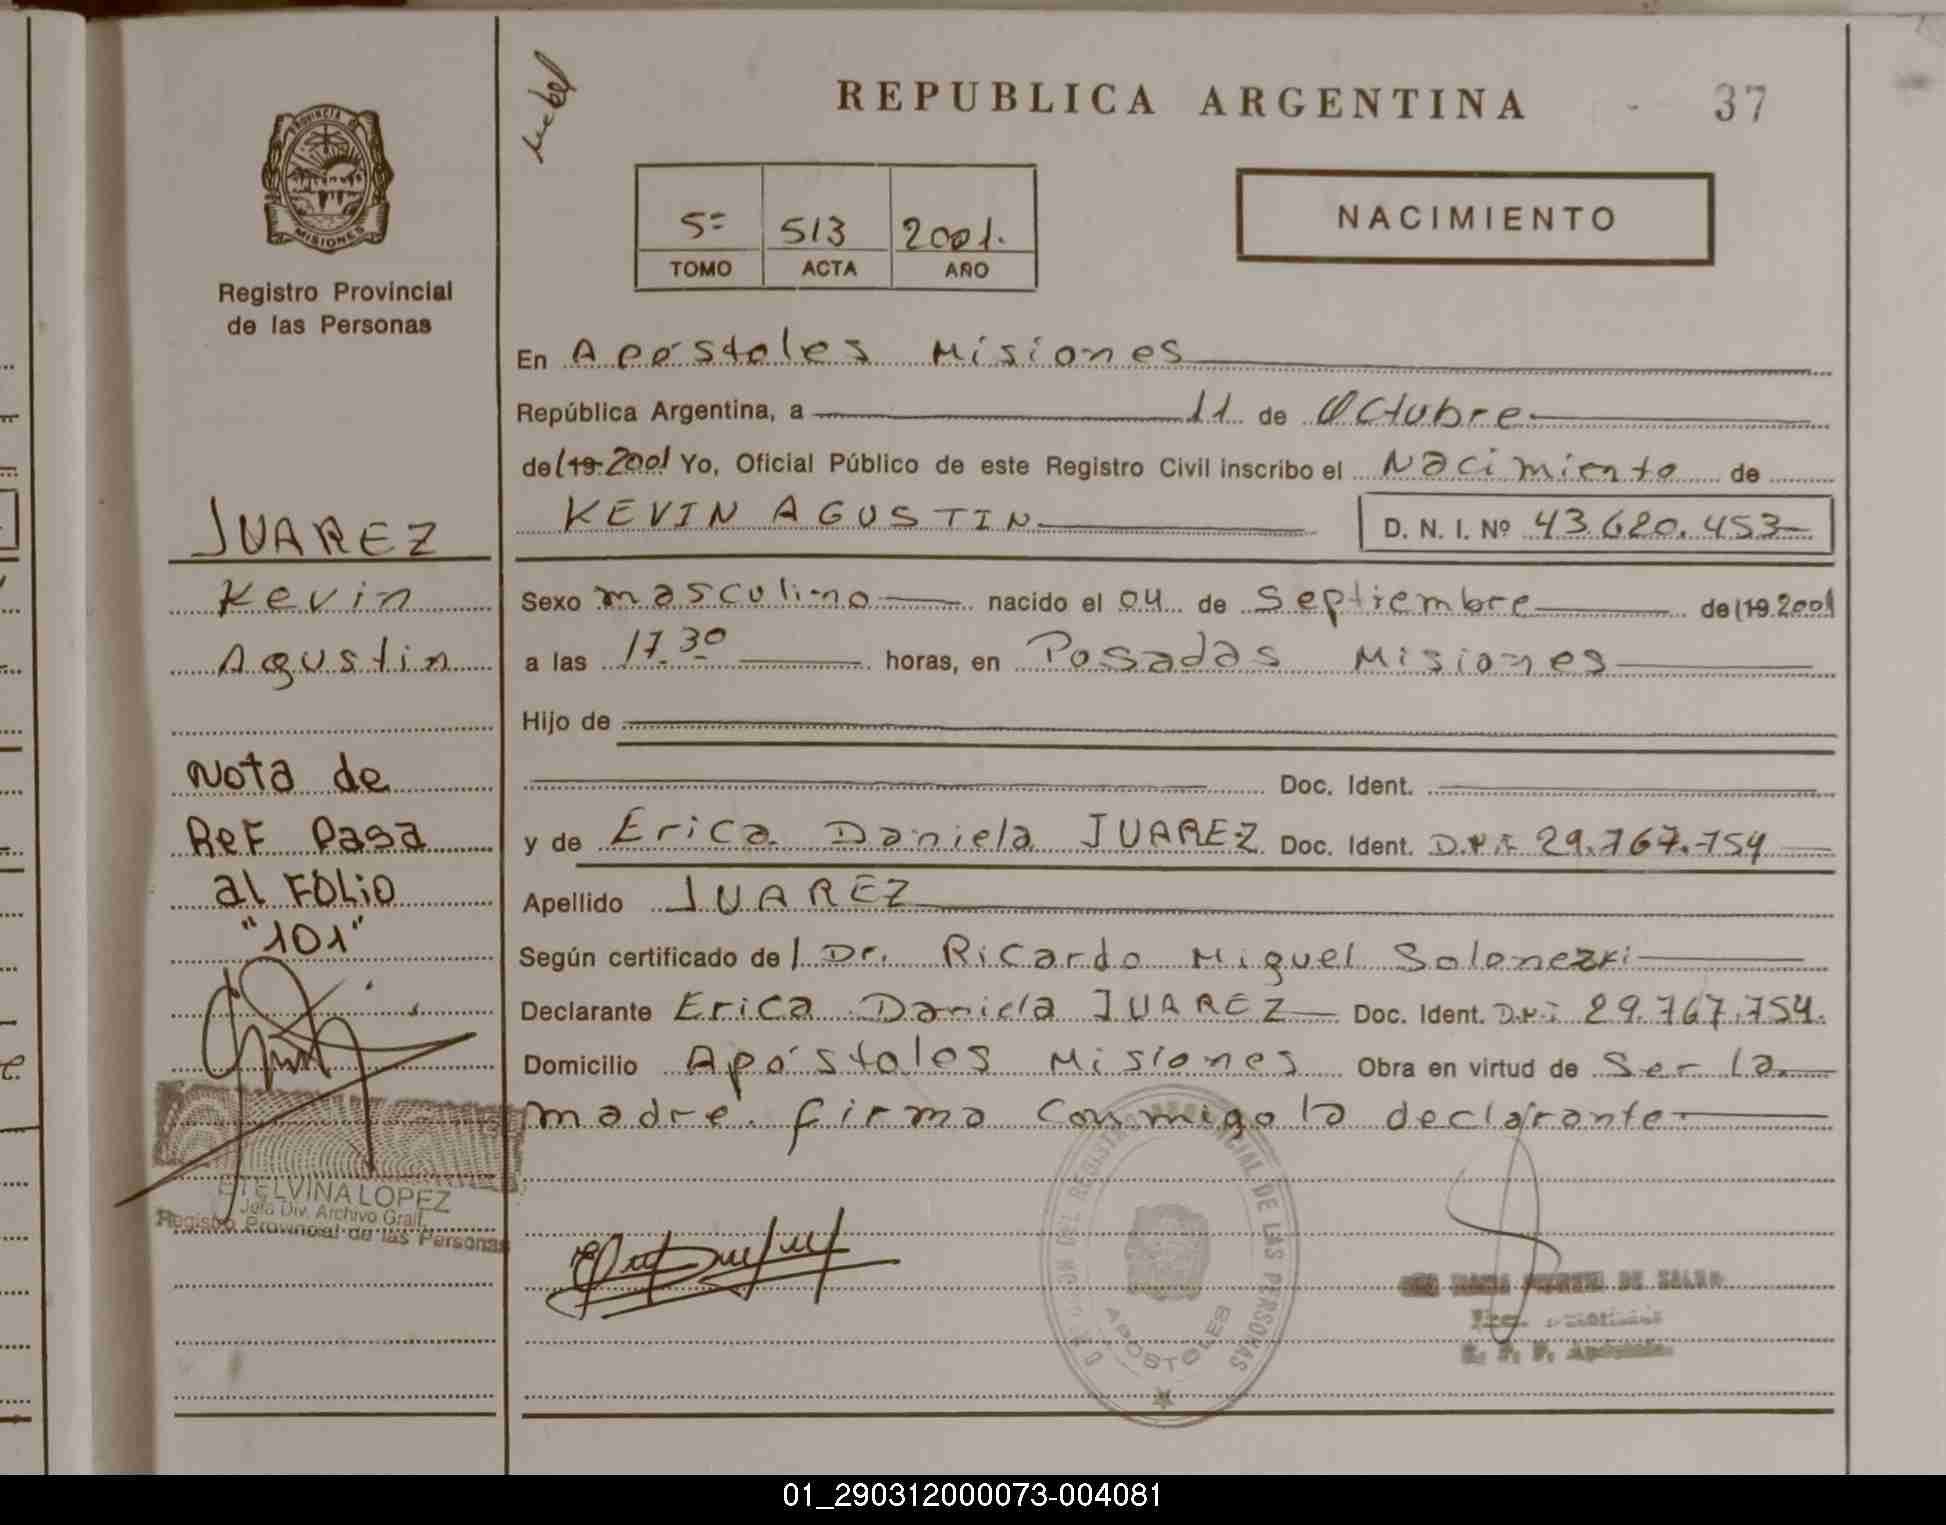 REPUBLICA ARGENTINA
37
PROVINCIA DE
MISIONES
Registro Provincial
de las Personas
5=
513
2001.
TOMO
ACTA
AÑO
NACIMIENTO
En Apóstoles Misiones
República Argentina, a 11 de Octubre
de (19 2001 Yo, Oficial Público de este Registro Civil inscribo el Nacimiento de
KEVIN AGUSTIN D. N. I. Nº 43.620.453
Sexo masculino nacido el 04 de Septiembre de (19 2001
a las 17.30 horas, en Posadas Misiones
Hijo de
Doc. Ident.
y de Erica Daniela JUAREZ Doc. Ident. D.N.I 29.767.754
Apellido JUAREZ
Según certificado de l Dr. Ricardo Miguel Solonezki
Declarante Erica Daniela JUAREZ Doc. Ident. D.N.I 29.767.754.
Domicilio Apóstoles Misiones Obra en virtud de Ser la
madre. firma conmigo la declarante
JUAREZ
Kevin
Agustin
Nota de
Ref Pasa
al FOLIO
"101"
ETELVINA LOPEZ
Jefa Div. Archivo Gral.
Registro Provincial de las Personas
DE LAS PERSONAS
APOSTOLES
01_290312000073-004081